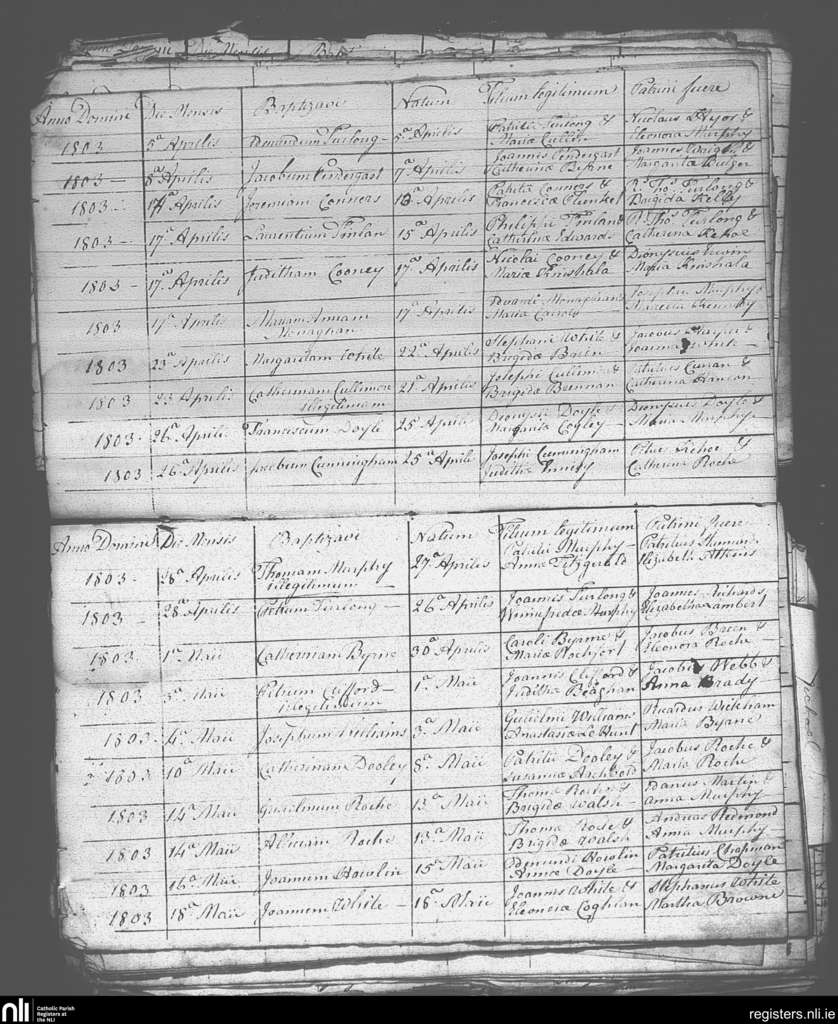 Anno Domini Die Mensis Baptizavi Natum Filium legitimum Patrini fuere
1803 5a Aprilis Edmundum Furlong - 5a Aprilis Patritii Furlong &
Maria Cullin Eleonora Murphy
1803 - 8a Aprilis Jacobum Pendergast 7a Aprilis Joannis Pendergast
Catherina Byrne Margarita Bulger
1803 17a Aprilis Jeremiam Connors Aprilis Patritii Connors & Rd Thos Furlong &
Francesca Plunket Brigida Kelly
1803 - 17a Aprilis Laurentium Finlan 15a Aprilis Philippi Finlan & Rd Thos Furlong &
Catherina Edwards Catherina Kehoe
1803 - 17a Aprilis Juditham Cooney 17a Aprilis Nicolai Cooney & Dionysius
Maria Kinshela Maria Kinshala
1803 17a Aprilis Mariam Annam 17a Aprilis Eduardi Monaghan & Josephus Murphy &
Monaghan Maria
1803 23a Aprilis Margaritam White 22a Aprilis Stephani White & Jacobus
Brigida Breen Joanna White -
1803 23 Aprilis Catherinam Cullimore 21a Aprilis Josephi Cullimore & Patritius Curran &
illegitimam Brigida Brennan Catherina Hanlon
1803 - 26a Aprilis Franciscum Doyle 25 Aprilis Dionysii Doyle & Dionysius Doyle &
Margarita Copley Maria Murphy
1803 26a Aprilis Jacobum Cunningham 25a Aprilis Josephi Cunningham Petrus Kehoe &
Juditha Catherina Roche
Anno Domini Die Mensis Baptizavi Natum Filium legitimum Patrini fuere
1803 - 28a Aprilis Thomam Murphy 27a Aprilis Patritii Murphy - Patritius
illegitimum Anna Fitzgerald Elizabeth
1803 - 28a Aprilis Petrum Furlong - 26a Aprilis Joannis Furlong & Joannes Richards
Winnifreda Murphy Elizabetha Lambert
1803 1a Maii Catherinam Byrne 30a Aprilis Caroli Byrne & Jacobus Breen &
Maria Rochfort Eleonora Roche -
1803 3a Maii Petrum Clifford - 1a Maii Joannis Clifford & Jacobus Webb &
illegitimum Juditha Beaghan Anna Brady
1803 - 4a Maii Josephum Williams 3a Maii Gulielmi Williams Ricardus Wickham
Anastasia Hunt Maria Byrne
1803 10a Maii Catherinam Dooley 8a Maii Patritii Dooley & Jacobus Roche &
Susanna Archbold Maria Roche
1803 14a Maii Gulielmum Roche 13a Maii Thoma Roche & Martin &
Brigida Walsh - Anna Murphy
1803 14a Maii Aliciam Roche 13a Maii Thoma Rose & Andreas Redmond
Brigida Walsh Anna Murphy -
1803 16a Maii Joannem Howlin 15a Maii Edmundi Howlin Patritius Chapman
Anna Doyle Margarita Doyle
1803 18a Maii Joannem White - 18a Maii Joannis White & Stephanus White
Eleonora Coghlan Martha Browne
nli Catholic Parish
Registers at
the NLI
registers.nli.ie